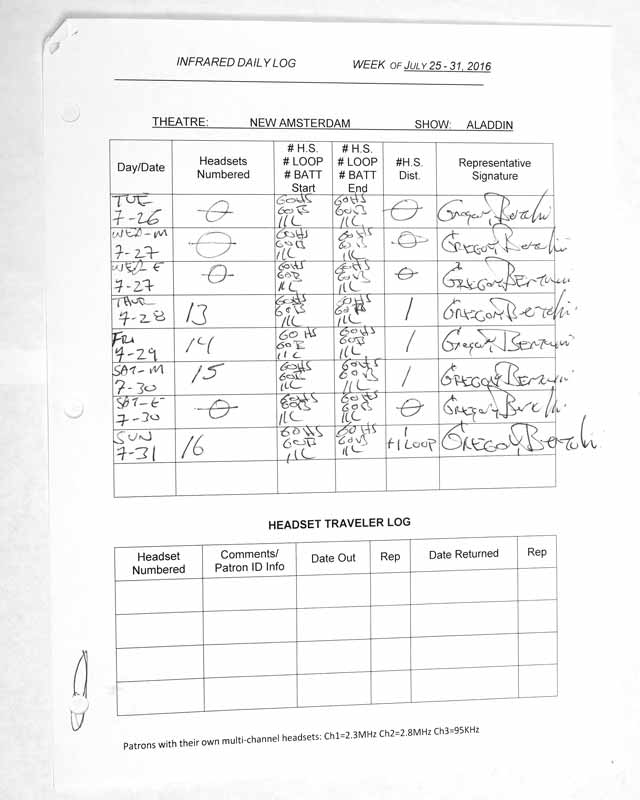 INFRARED DAILY LOG WEEK OF JULY 25 - 31, 2016
THEATRE: NEW AMSTERDAM SHOW: ALADDIN
Day/Date Headsets Numbered # H.S. # LOOP # BATT Start # H.S. # LOOP # BATT End #H.S. Dist. Representative Signature
TUE 7-26 0 60HS 60B 1LC 60HS 60B 1LC 0 Gregory
WED-M 7-27 0 60HS 60B 1LC 60HS 60B 1LC 0 GREGORY
WED-E 7-27 0 60HS 60B 1LC 60HS 60B 1LC 0 GREGORY
THUR 7-28 13 60HS 60B 1LC 60HS 60B 1LC 1 GREGORY
FRI 7-29 14 60HS 60B 1LC 60HS 60B 1LC 1 Gregory
SAT-M 7-30 15 60HS 60B 1LC 60HS 60B 1LC 1 GREGORY
SAT-E 7-30 0 60HS 60B 1LC 60HS 60B 1LC 0 GREGORY
SUN 7-31 16 60HS 60B 1LC 60HS 60B 1LC 1 +1 LOOP GREGORY
HEADSET TRAVELER LOG
Headset Numbered Comments/ Patron ID Info Date Out Rep Date Returned Rep
Patrons with their own multi-channel headsets: Ch1=2.3MHz Ch2=2.8MHz Ch3=95KHz